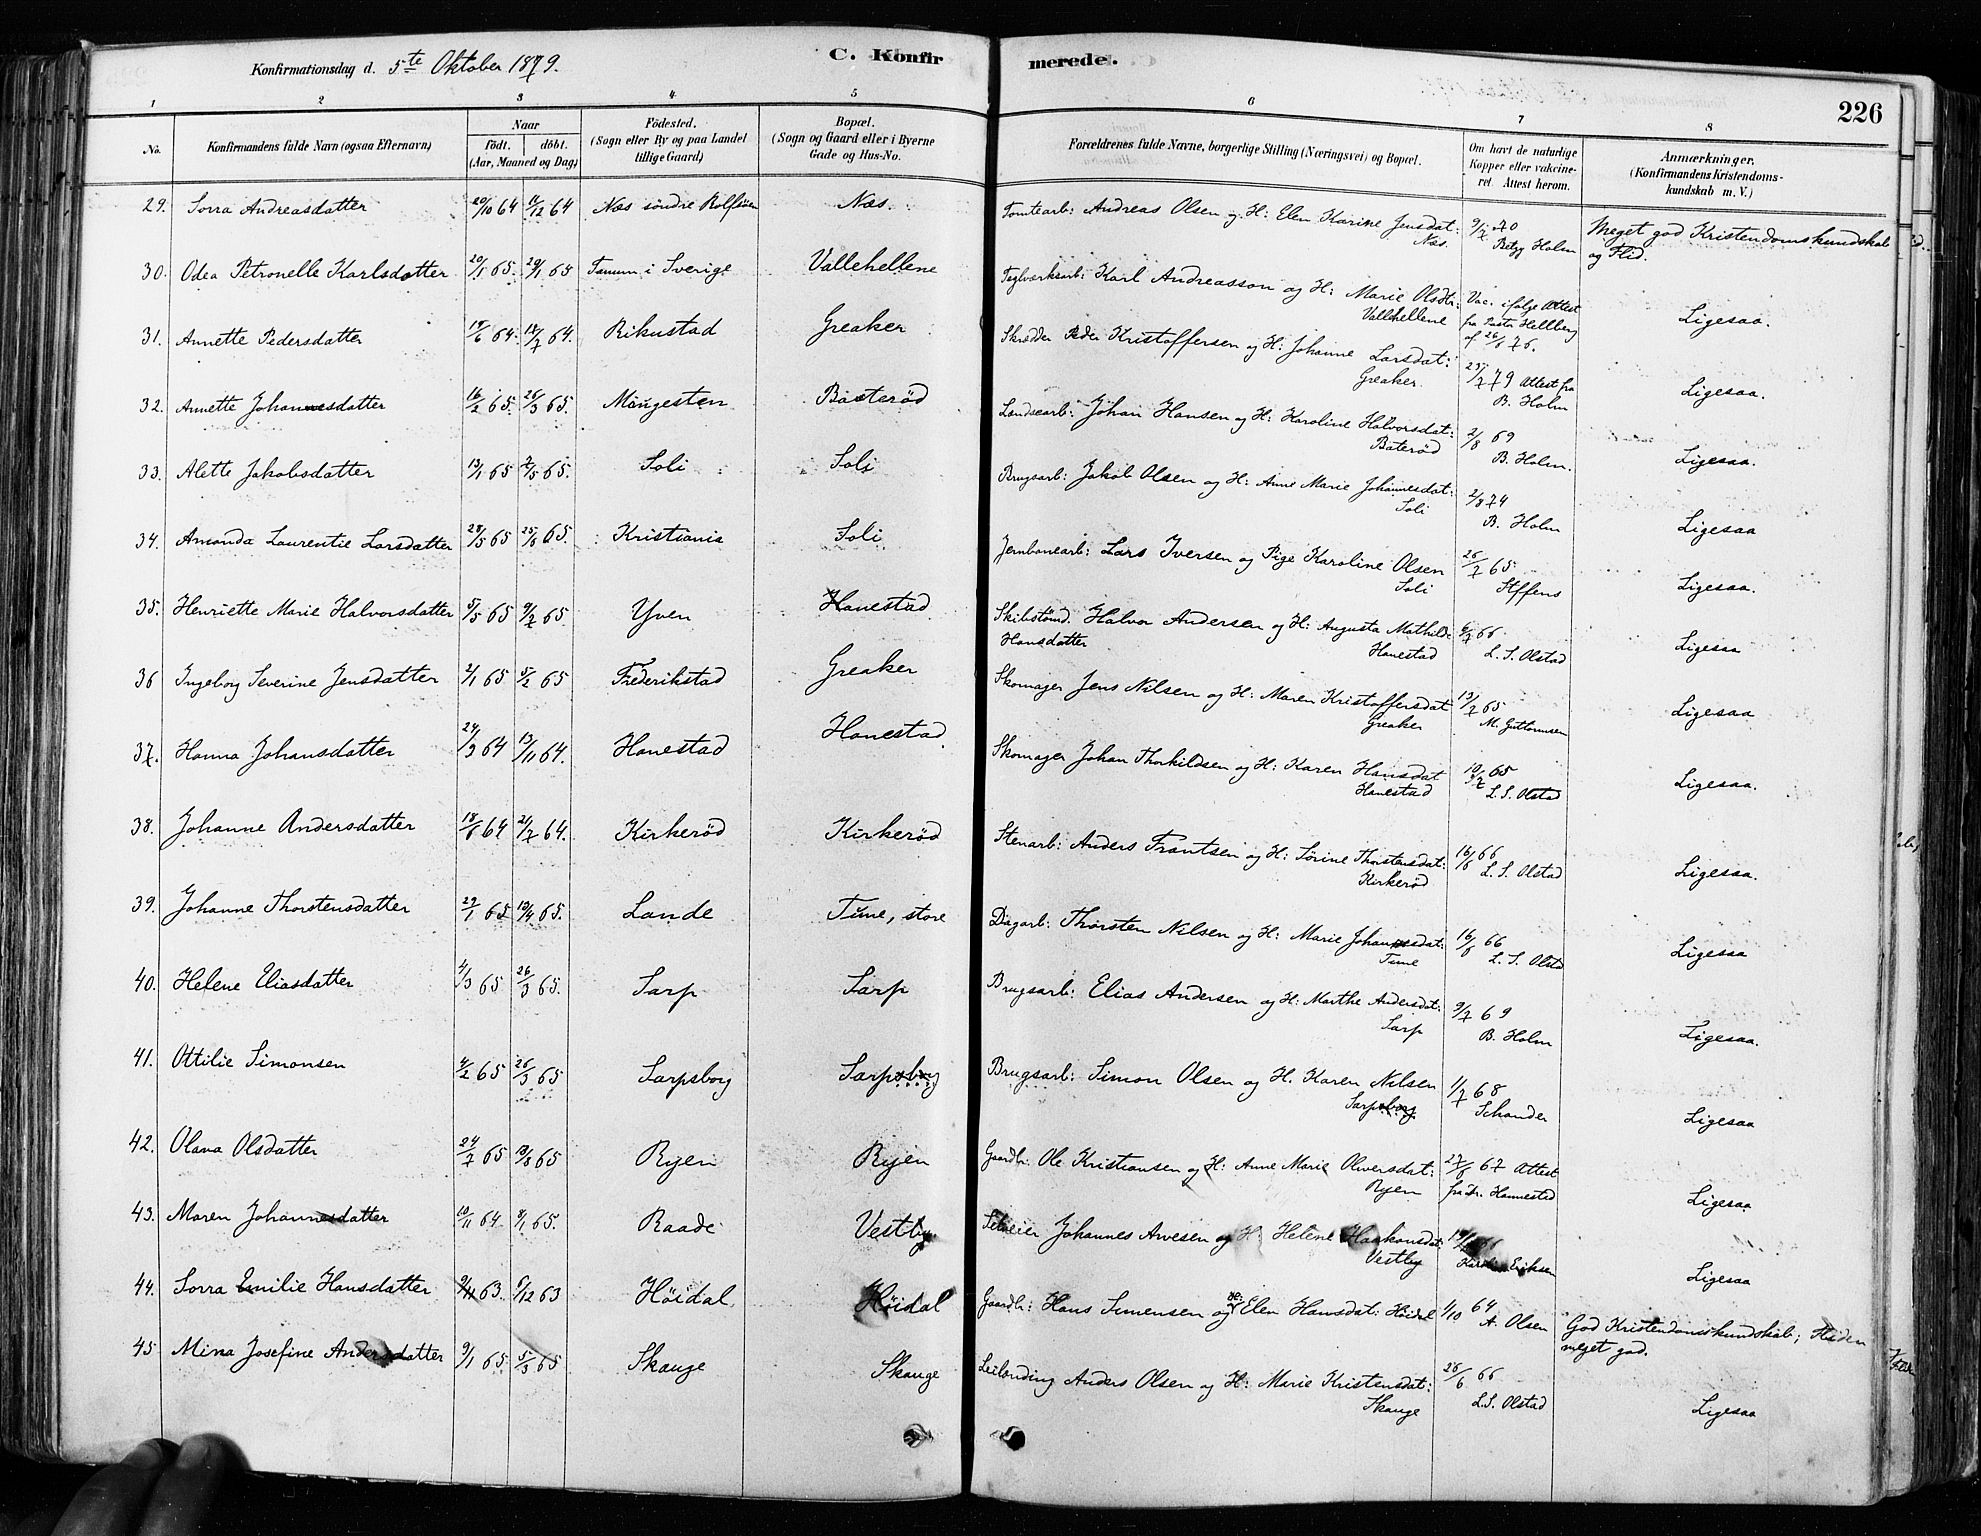 Konfirmationsdag d. 5te Oktober 1879. C. Konfirmerede. 226
1 2 3 4 5 6 7 8
No. Konfirmandens fulde Navn (ogsaa Efternavn) Naar født. døbt. (Aar, Maaned og Dag) Födested. (Sogn eller By og paa Landet tillige Gaard) Bopæl. (Sogn og Gaard eller i Byerne Gade og Hus-No. Forældrenes fulde Navne, borgerlige Stilling (Næringsvei) og Bopæl. Om havt de naturlige Kopper eller vakcineret. Attest herom. Anmærkninger. (Konfirmandens Kristendomskundskab m. V.)
29. Sorra Andreasdatter 20/10 64 64 Næs søndre Rolfsöen Næs. Tomtearb: Andreas Olsen og H: Elen Karine Jensdat: Næs. 9/7 70 Holm Meget god Kristendomskundskab og Flid.
30. Odea Petronelle Karlsdatter 20/1 65. 29/1 65 Tanum i Sverige Vallehellene Teglværksarb: Karl Andreasson og H: Marie Olsdtr: Vallehellene Vac. ifølge Attest fra Pastor Hellberg af 26/6 76. Ligesaa.
31. Annette Pedersdatter 64. 18/7 64. Rikustad Greaker Skrædder Peder Kristoffersen og H: Johanne Larsdat: Greaker. 25/7 79 Attest fra B. Holm Ligesaa.
32. Annette Johannesdatter 16/2 65. 26/3 65. Mingesten Baaterød Landsearb: Johan Hansen og H: Karoline Halvorsdat: Baterød 2/8 69 B. Holm. Ligesaa.
33. Alette Jakobsdatter 13/1 65 7/5 65. Soli Soli Brugsarb: Jakob Olsen og H: Anne Marie Johannesdat: Soli 2/8 74 B. Holm Ligesaa
34. Amanda Laurentie Larsdatter 28/5 65 25/6 65. Kristiania Soli Jernbanearb: Lars Iversen og Pige Karoline Olsen Soli 26/7 65 Steffens Ligesaa.
35. Henriette Marie Halvorsdatter 5/5 65 9/7 65. Yven Hanestad Skibstømd. Halvor Andersen og H: Augusta Mathilde Hansdatter Hanestad 66 L. S. Olstad Ligesaa
36 Ingeborg Severine Jensdatter 2/1 65 5/2 65 Frederikstad Greaker Skomager Jens Nilsen og H: Maren Kristoffersdat Greaker 13/7 65 M. Guttormsen Ligesaa
37. Hanna Johansdatter 24/3 64 13/11 64. Hanestad Hanestad Skomager Johan Thorkildsen og H: Karen Hansdat Hanestad 10/7 65 L. S. Olstad Ligesaa.
38. Johanne Andersdatter 18/6 64 21/7 64. Kirkerød Kirkerød Stenarb: Anders Frantsen og H: Sørine Thorstensdat: Kirkerød 16/6 66 L. S. Olstad Ligesaa.
39. Johanne Thorstensdatter 29/1 65 10/4 65. Lande Tune, store Dagarb: Thorsten Nilsen og H: Marie Johannesdat: Tune 16/6 66 L. S. Olstad Ligesaa
40. Helene Eliasdatter 4/3 65 26/3 65. Sarp Sarp Brugsarb: Elias Andersen og H: Marthe Andersdat: Sarp 9/7 69 B. Holm Ligesaa.
41. Ottilie Simonsen 4/2 65 26/3 65 Sarpsborg Sarpsborg Brugsarb: Simon Olsen og H. Karen Nilsen Sarpsborg 1/7 68 Schander Ligesaa
42. Olava Olsdatter 24/7 65 13/8 65 Ryen Ryen Gaardbr: Ole Kristiansen og H: Anne Marie Oliversdat: Ryen 27/6 67 Attest fra Dr. Hannestad Ligesaa
43. Maren Johannesdatter 10/11 64. 8/1 65. Raade Vestby Selveier Johannes Arvesen og H: Helene Haakonsdat Vestby 66 Eriksen Ligesaa
44. Sorra Emilie Hansdatter 9/11 63. 5/12 63 Höidal Höidal Gaardbr: Hans Simensen og H: Elen Hansdat: Höidal 1/10 64 A. Olsen God Kristendomskundskab; Fliden meget god.
45 Mina Josefine Andersdatter 9/1 65 5/3 65 Skauge Skauge Leilending Anders Olsen og H: Marie Kristensdat: Skauge 26/6 66 L. S. Olstad Ligesaa